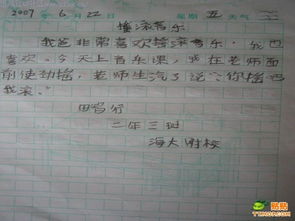 2007年6月22日 星期五 天气
摇滚音乐
我爸非常喜欢摇滚音乐,我也
喜欢。今天上音乐课,我在老师面
前使劲摇,老师生气了说:“你摇吗
我滚。”
二年三班
海大附校